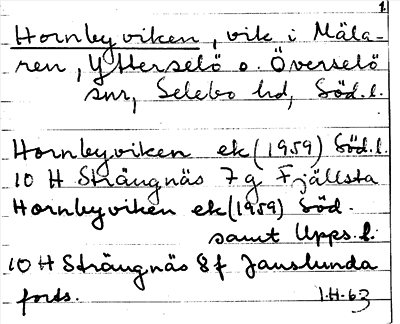 1.
Hornbyviken, vik i Mäla-
ren, Ytterselö o. Överselö
snr, Selebo hd, Söd. l.
Hornbyviken ek (1959) Söd. l.
10 H Strängnäs 7 g Fjällsta
Hornbyviken ek (1959) Söd.
samt Upps. l.
10 H Strängnäs 8 f Janslunda
forts. I.H-63